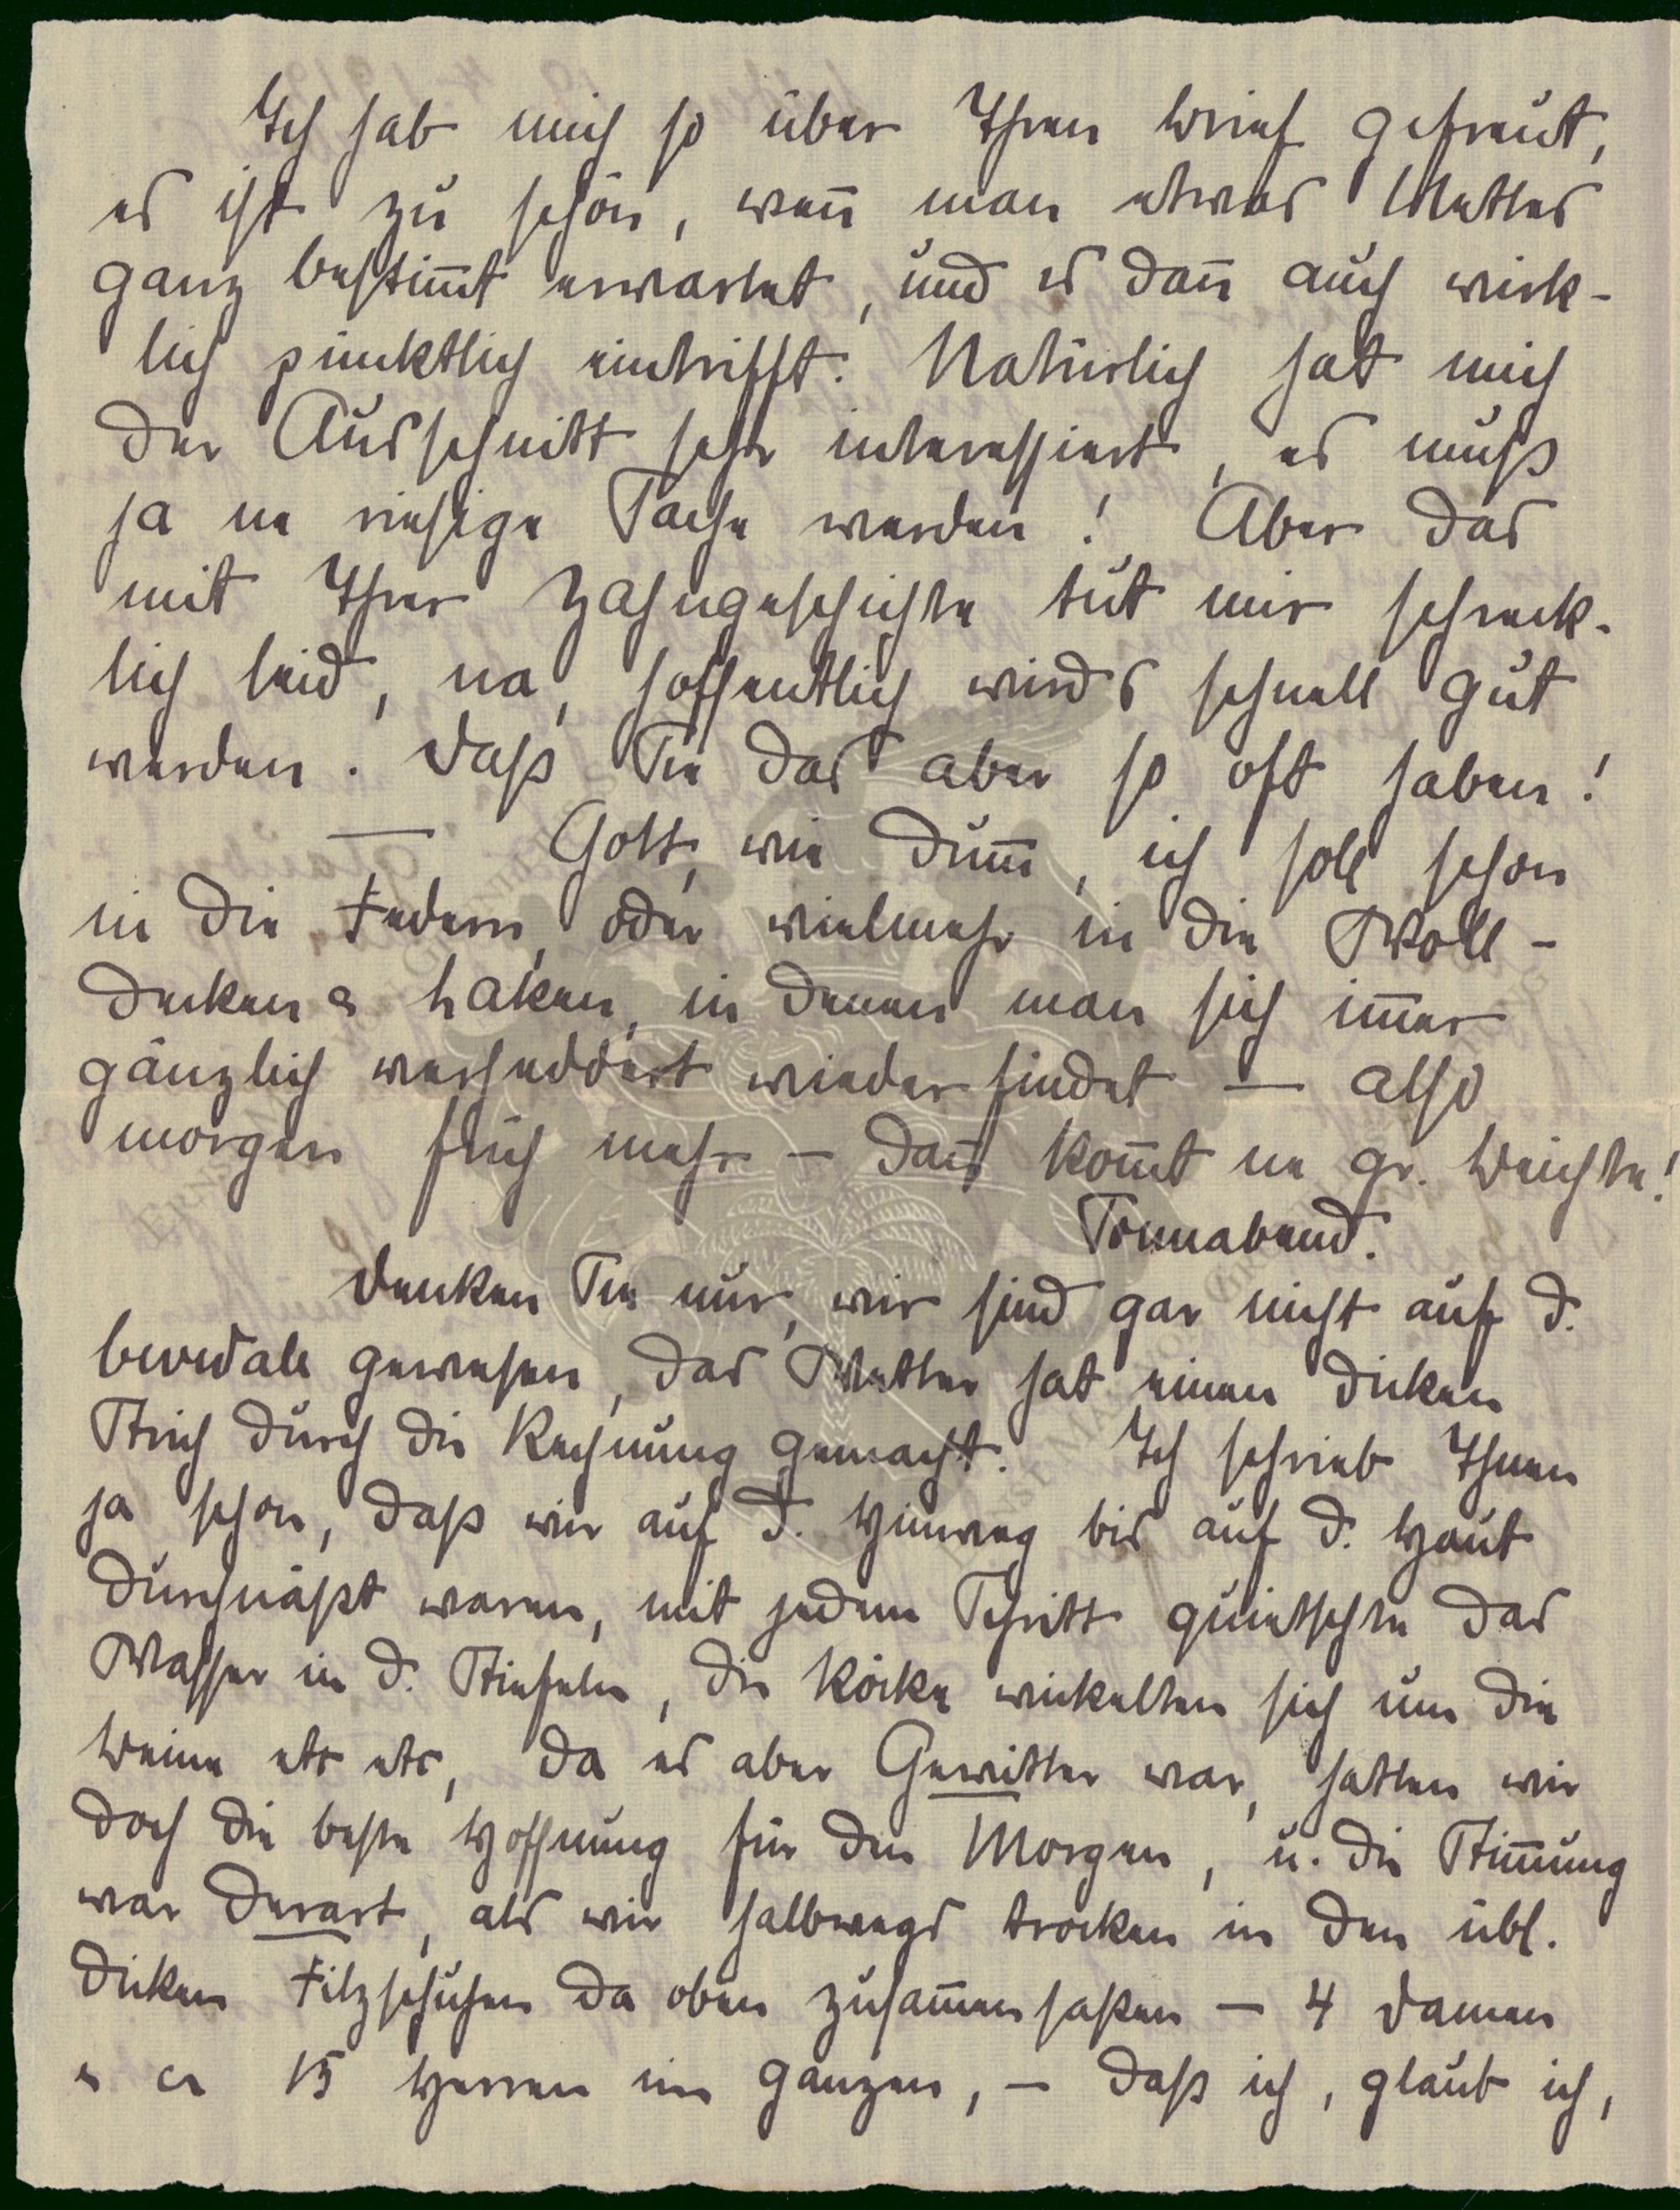 Ich hab mich so über Ihren Brief gefreut,
es ist zu schön, wen̄ man etwas Nettes
ganz bestim̄t erwartet, und es dan̄ auch wirk-
lich pünktlich eintrifft. Natürlich hat mich
der Ausschnitt sehr interessiert, es muß
ja ne riesige Sache werden! Aber das
mit Ihrer Zahngeschichte tut mir schreck-
lich leid, na, hoffentlich wirds schnell gut
werden. Daß Sie das aber so oft haben!
— Gott, wie dum̄, ich soll schon
in die Federn, oder vielmehr in die Woll-
decken & Laken, in denen man sich im̄er
gänzlich verheddert wiederfindet — also
morgen früh mehr — dan̄ kom̄t ne gr. Beichte!
Sonnabend.
Denken Sie nur, wir sind gar nicht auf d.
gewesen, das Wetter hat einen dicken
Strich durch die Rechnung gemacht. Ich schrieb Ihnen
ja schon, daß wir auf d. Hinweg bis auf d. Haut
durchnäßt waren, mit jedem Schritt quietschte das
Wasser in d. Stiefeln, die Röcke wickelten sich um die
Beine etc etc, da es aber Gewitter war, hatten wir
doch die beste Hoffnung für den Morgen, u. die Stim̄ung
war derart, als wir halbwegs trocken in den übl.
dicken Filzschuhen da oben zusam̄ensaßen — 4 Damen
& ca 15 Herren im ganzen, — daß ich, glaub ich,